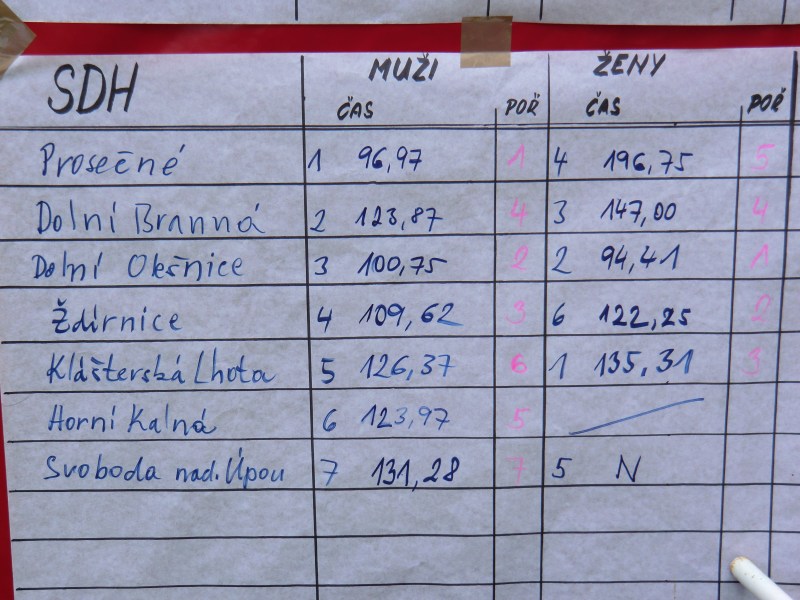 SDH MUŽI ŽENY
ČAS POŘ ČAS POŘ
Prosečné 1 96,97 1 4 196,75 5
Dolní Branná 2 123,87 4 3 147,00 4
Dolní Olešnice 3 100,75 2 2 94,41 1
Ždírnice 4 109,62 3 6 122,25 2
Klášterská Lhota 5 126,37 6 1 135,31 3
Horní Kalná 6 123,97 5
Svoboda nad. Úpou 7 131,28 7 5 N